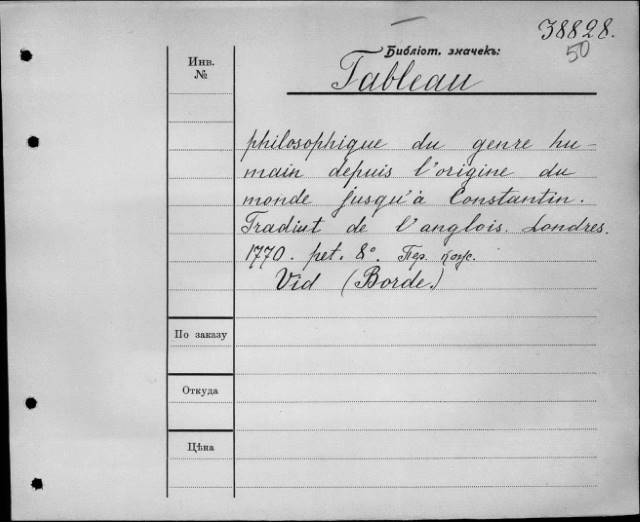 38828.
50
Библіот. значекъ:
Инв.
№
Tableau
philosophique du genre hu-
main depuis l'origine du
monde jusqu'à Constantin.
Tradiut de l'anglois. Londres.
1770. pet. 8°. Пер. кож.
Vid (Borde.)
По заказу
Откуда
Цѣна